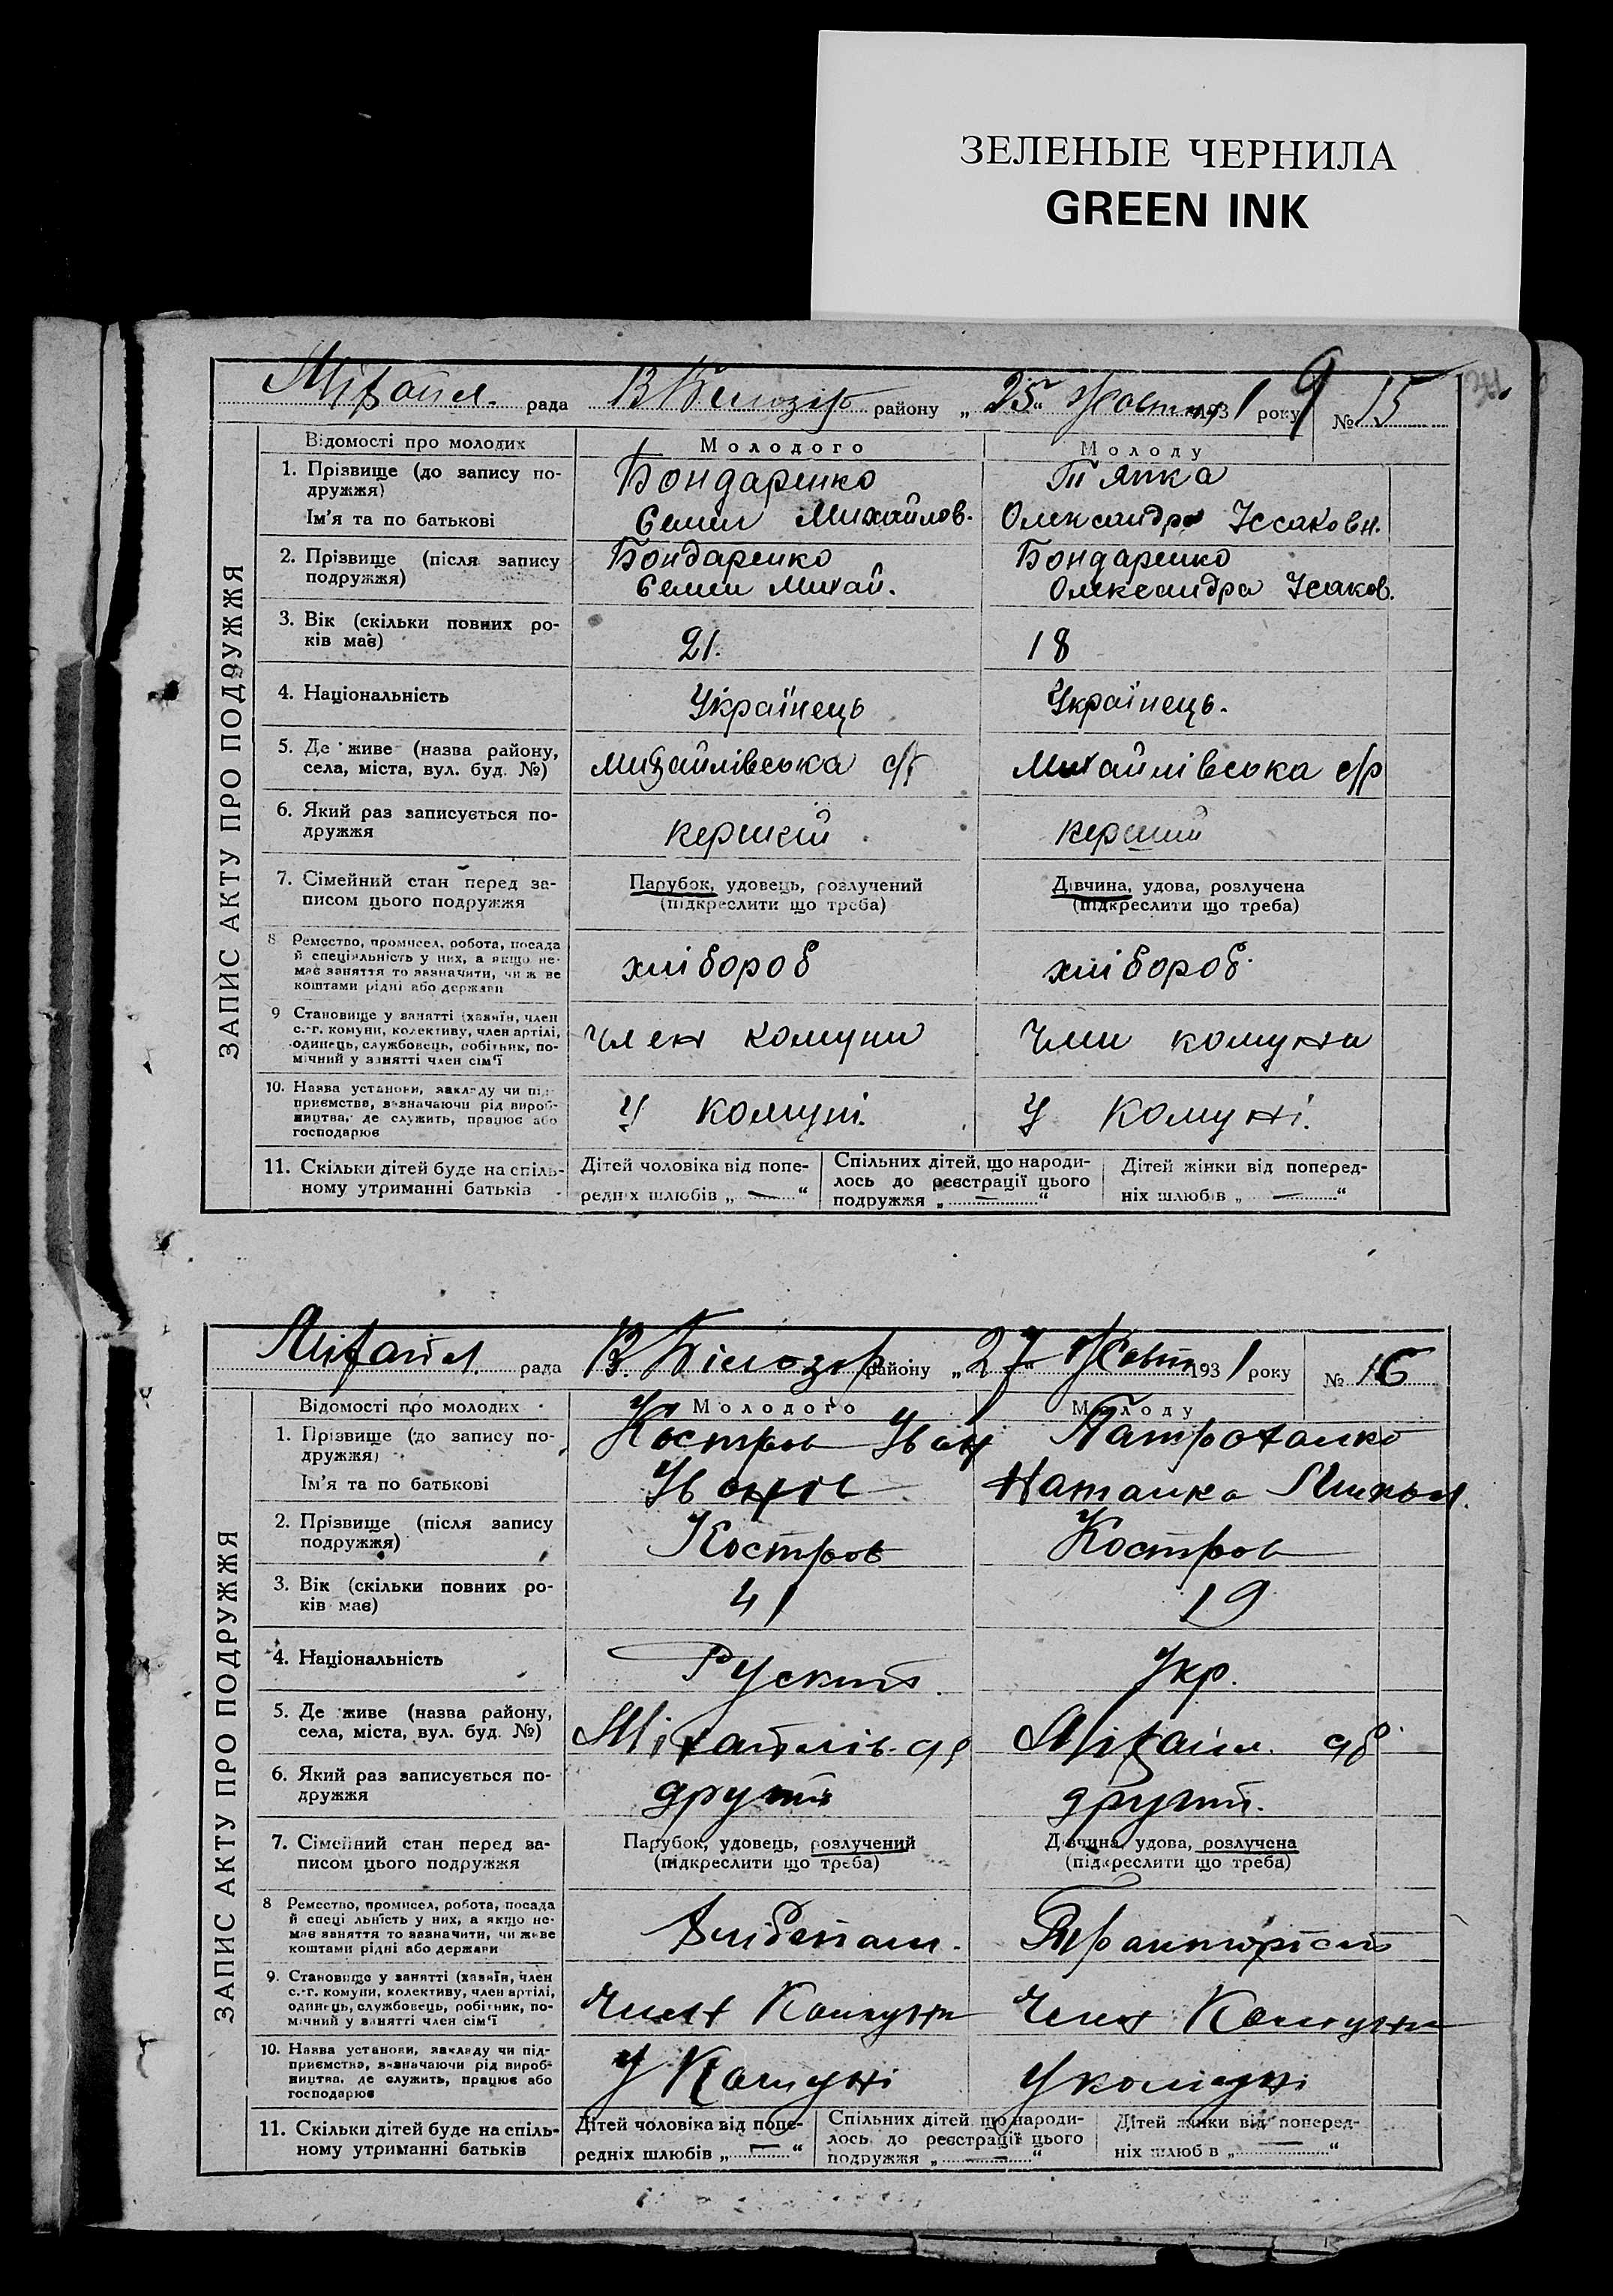 ЗЕЛЕНЫЕ ЧЕРНИЛА
GREEN INK
Міхайл. рада В Білозір району „25“ Жовтня 1931 року № 15
Відомості про молодих Молодого Молоду
ЗАПИС АКТУ ПРО ПОДРУЖЖЯ
1. Прізвище (до запису по-
дружжя)
Бондаренко
Тяпка
Ім'я та по батькові
Семен Михайлов.
Олександра Ісаковн.
2. Прізвище (після запису
подружжя)
Бондаренко
Семен Михай.
Бондаренко
Олександра Ісаков.
3. Вік (скільки повних ро-
ків має)
21.
18
4. Національність
Українець
Українець.
5. Де живе (назва району,
села, міста, вул. буд. №)
Михайлівська с/р
Михайлівська с/р
6. Який раз записується по-
дружжя
перший
перший
7. Сімейний стан перед за-
писом цього подружжя
Парубок, удовець, розлучений
(підкреслити що треба)
Дівчина, удова, розлучена
(підкреслити що треба)
8 Ремество, промисел, робота, посада
й спеціяльність у них, а якщо не-
має заняття то зазначити, чи ж ве
коштами рідні або держави
хлібороб
хлібороб.
9 Становище у занятті (хазяїн, член
с.-г. комуни, колективу, член артілі,
одинець, службовець, робітник, по-
мічний у занятті член сім'ї
член комуни
член комуни
10. Назва установи, закладу чи під-
приємства, визначаючи рід вироб-
ництва, де служить, працює або
господарює
У комуні.
У комуні.
11. Скільки дітей буде на спіль-
ному утриманні батьків
Дітей чоловіка від попе-
редніх шлюбів „ — “
Спільних дітей, що народи-
лось до реєстрації цього
подружжя „ — “
Дітей жінки від поперед-
ніх шлюбів „ — “
Міхайл. рада В. Білозір району „27“ Жовтн 1931 року № 16
Відомості про молодих Молодого Молоду
ЗАПИС АКТУ ПРО ПОДРУЖЖЯ
1. Прізвище (до запису по-
дружжя)
Костров Іван
Ім'я та по батькові
Іванів
Наталка
2. Прізвище (після запису
подружжя)
Костров
Костров
3. Вік (скільки повних ро-
ків має)
41
19
4. Національність
Руский
Укр.
5. Де живе (назва району,
села, міста, вул. буд. №)
Міхайлів.
Міхайл.
6. Який раз записується по-
дружжя
другий
другий.
7. Сімейний стан перед за-
писом цього подружжя
Парубок, удовець, розлучений
(підкреслити що треба)
Дівчина, удова, розлучена
(підкреслити що треба)
8 Ремество, промисел, робота, посада
й спеціяльність у них, а якщо не-
має заняття то зазначити, чи живе
коштами рідні або держави
9. Становище у занятті (хазяїн, член
с.-г. комуни, колективу, член артілі,
одинець, службовець, робітник, по-
мічний у занятті член сім'ї
Член Комуни
Член Комуни
10. Назва установи, закладу чи під-
приємства, визначаючи рід вироб-
ництва, де служить, працює або
господарює
У Комуні
У комуні
11. Скільки дітей буде на спіль-
ному утриманні батьків
Дітей чоловіка від попе-
редніх шлюбів „ — “
Спільних дітей що народи-
лось до реєстрації цього
подружжя „ — “
Дітей жінки від поперед-
ніх шлюбів „ — “